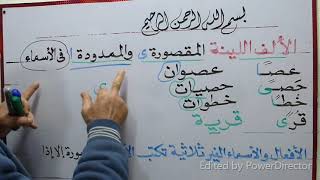 بسم الله الرحمن الرحيم
الألف اللينة المقصورة ى والممدودة ا في الأسماء
عصًا عصوان
حصًى حصيات ى
خطًا خطوات
قرًى قرية
الأفعال والأسماء الغير ثلاثية تكتب إلا إذا
Edited by PowerDirector